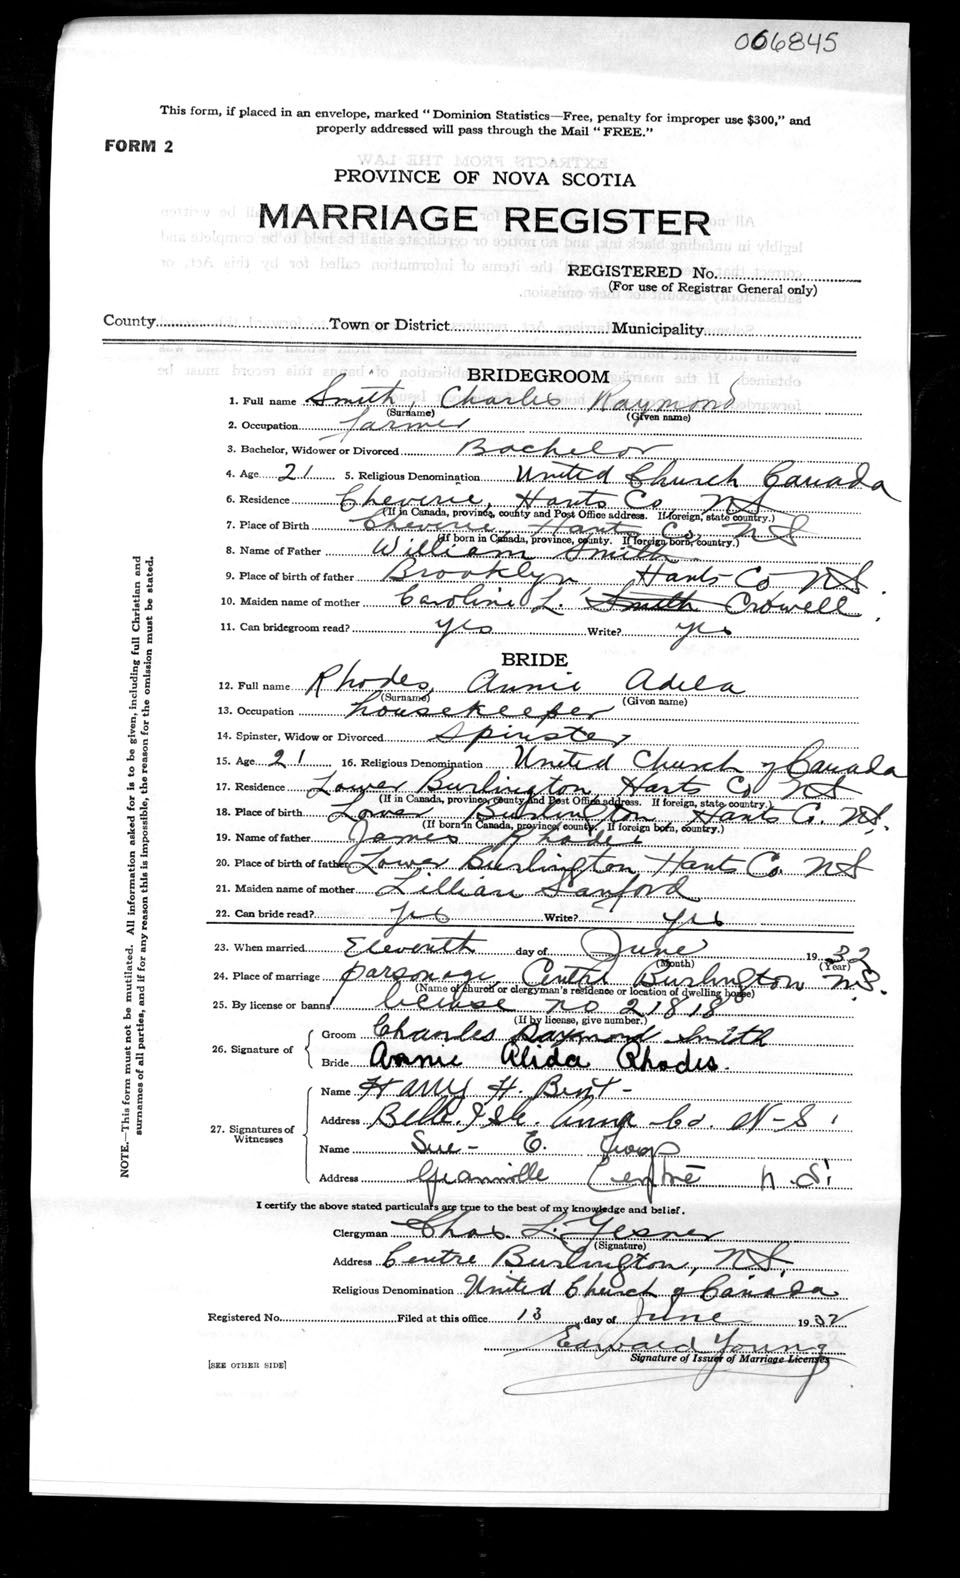 006845
This form, if placed in an envelope, marked "Dominion Statistics—Free, penalty for improper use $300," and
properly addressed will pass through the Mail "FREE."
FORM 2
PROVINCE OF NOVA SCOTIA
MARRIAGE REGISTER
REGISTERED No.
(For use of Registrar General only)
County Town or District Municipality
BRIDEGROOM
1. Full name Smith, Charles Raymond
(Surname) (Given name)
2. Occupation farmer
3. Bachelor, Widower or Divorced Bachelor
4. Age 21 5. Religious Denomination United Church Canada
6. Residence Cheverie, Hants Co NS
(If in Canada, province, county and Post Office address. If foreign, state country.)
7. Place of Birth Cheverie, Hants Co. NS
(If born in Canada, province, county. If foreign born, country.)
8. Name of Father William Smith
9. Place of birth of father Brooklyn Hants Co NS.
10. Maiden name of mother Caroline L. Smith Crowell
11. Can bridegroom read? yes Write? yes
BRIDE
12. Full name Rhodes, Annie Adela
(Surname) (Given name)
13. Occupation housekeeper
14. Spinster, Widow or Divorced Spinster
15. Age 21 16. Religious Denomination United Church of Canada
17. Residence Lower Burlington, Hants Co NS
(If in Canada, province, county and Post Office address. If foreign, state country.)
18. Place of birth Lower Burlington, Hants Co. NS.
(If born in Canada, province, county. If foreign born, country.)
19. Name of father James Rhodes
20. Place of birth of father Lower Burlington Hants Co NS
21. Maiden name of mother Lillian Sanford
22. Can bride read? yes Write? yes
23. When married Eleventh day of June 1932
(Month) (Year)
24. Place of marriage parsonage, Centre Burlington N.S.
(Name of church or clergyman's residence or location of dwelling house)
25. By license or banns license no 21818
(If by license, give number.)
26. Signature of Groom Charles Raymond Smith
Bride Annie Alida Rhodes.
27. Signatures of Witnesses Name Harry H. Bent
Address Belle Isle. Anna Co. N-S
Name Sue E.
Address Granville Centre N.S.
I certify the above stated particulars are true to the best of my knowledge and belief.
Clergyman Chas. L. Gesner
(Signature)
Address Centre Burlington, NS,
Religious Denomination United Church of Canada
Registered No. Filed at this office 13 day of June 1932
Edward Young
Signature of Issuer of Marriage Licenses
[SEE OTHER SIDE]
NOTE.—This form must not be mutilated. All information asked for is to be given, including full Christian and
surnames of all parties, and if for any reason this is impossible, the reason for the omission must be stated.